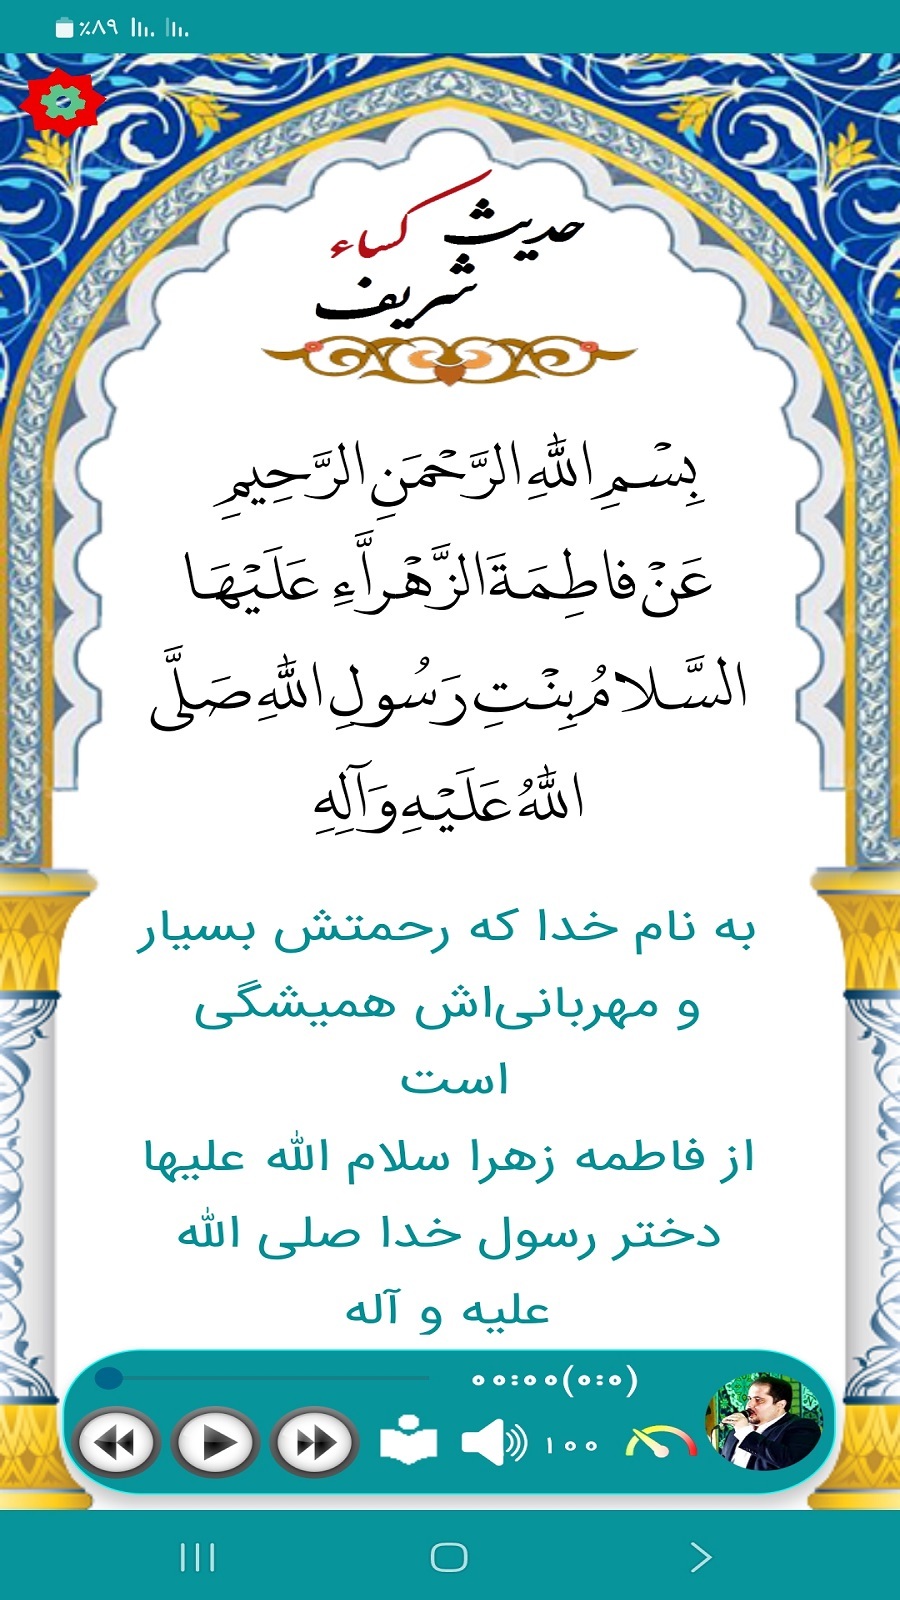 ٪۸۹
حدیث کساء
شریف
بِسْمِ اللّٰهِ الرَّحْمَنِ الرَّحِيمِ
عَنْ فاطِمَةَ الزَّهْرآَّءِ عَلَيْهَا
السَّلامُ بِنْتِ رَسُولِ اللّٰهِ صَلَّى
اللّٰهُ عَلَيْهِ وَآلِهِ
به نام خدا که رحمتش بسیار
و مهربانی‌اش همیشگی
است
از فاطمه زهرا سلام الله علیها
دختر رسول خدا صلی الله
علیه و آله
۰۰:۰۰(۰:۰)
۱۰۰